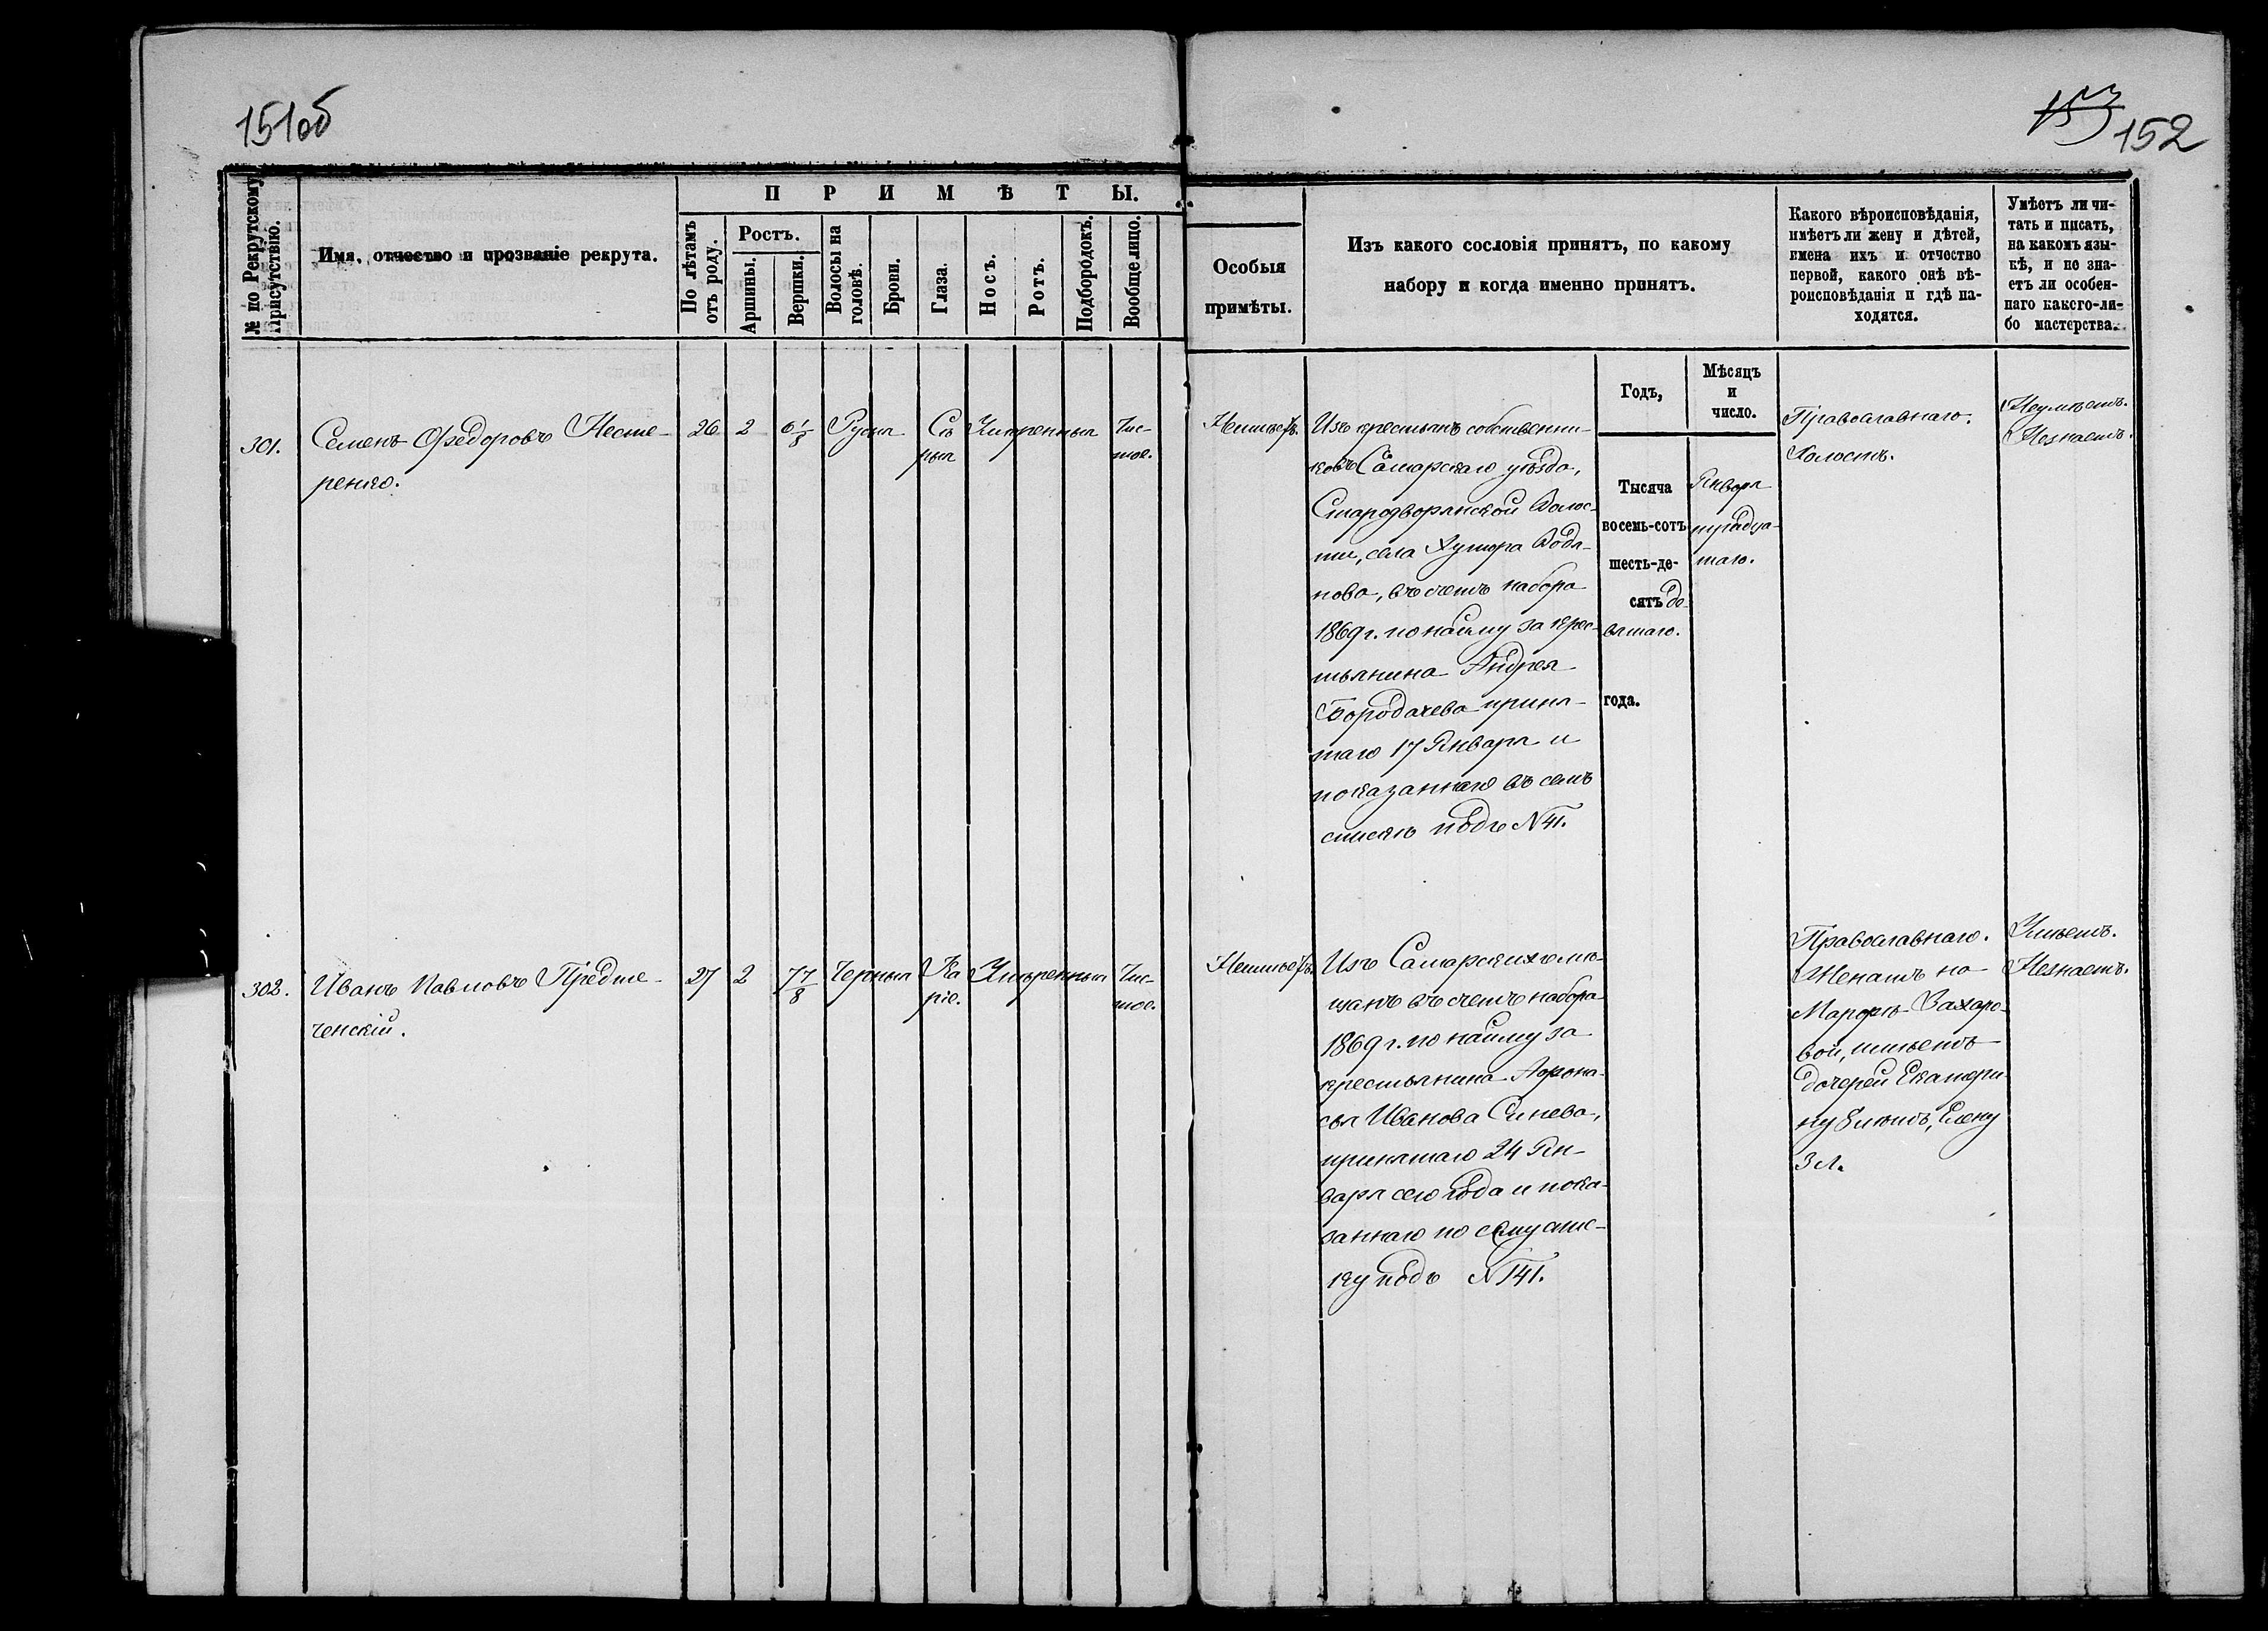 151об
153
152
№ по Рекрутскому
Присутствію.
Имя, отчество и прозваніе рекрута.
ПРИМѢТЫ.
По лѣтамъ
отъ роду.
Ростъ.
Аршины.
Вершки.
Волосы на
головѣ.
Брови.
Глаза.
Носъ.
Ротъ.
Подбородокъ.
Вообще лицо.
Особыя
примѣты.
Изъ какого сословія принятъ, по какому
набору и когда именно принятъ.
Какого вѣроисповѣданія,
имѣетъ ли жену и дѣтей,
имена ихъ и отчество
первой, какого онѣ вѣ-
роисповѣданія и гдѣ на-
ходятся.
Умѣетъ ли чи-
тать и писать,
на какомъ язы-
кѣ, и не зна-
етъ ли особен-
наго какого-ли-
бо мастерства.
Годъ,
Мѣсяцъ
и
число.
301.
Семенъ Ѳедоровъ Несте-
ренко.
26
2
6 1/8
Русыя
Сѣ
рыя
Умѣренныя
Чис-
тое.
Неимѣетъ.
Изъ крестьянъ собственни-
ковъ Самарскаго уѣзда,
Стародворянской Волос-
ти, села Хутора Водя-
нова, въ счетъ набора
1869 г. по найму за крес-
тьянина Андрея
Бородачева приня-
таго 17 Января и
показаннаго въ семъ
спискѣ подъ N 41.
Тысяча
восемь-сотъ
шесть-де-
сятъ де-
вятаго.
года.
Января
тридца-
таго.
Православнаго.
Холостъ.
Неумѣетъ.
Незнаетъ.
302.
Иванъ Павловъ Предте-
ченскій.
27
2
7 7/8
Черныя
Ка
ріе.
Умѣренныя
Чис-
тое.
Неимѣетъ.
Изъ Самарскихъ мѣ-
щанъ въ счетъ набора
1869 г. по найму за
крестьянина Афона-
сья Иванова Синева,
принятаго 24 Ян-
варя сего года и пока-
заннаго по сему спис-
ку подъ N 141.
Православнаго.
Женатъ на
Марфѣ Захаро-
вой, имѣетъ
дочерей Екатери-
ну 8 лѣтъ, Елену
3 л.
Умѣетъ.
Незнаетъ.